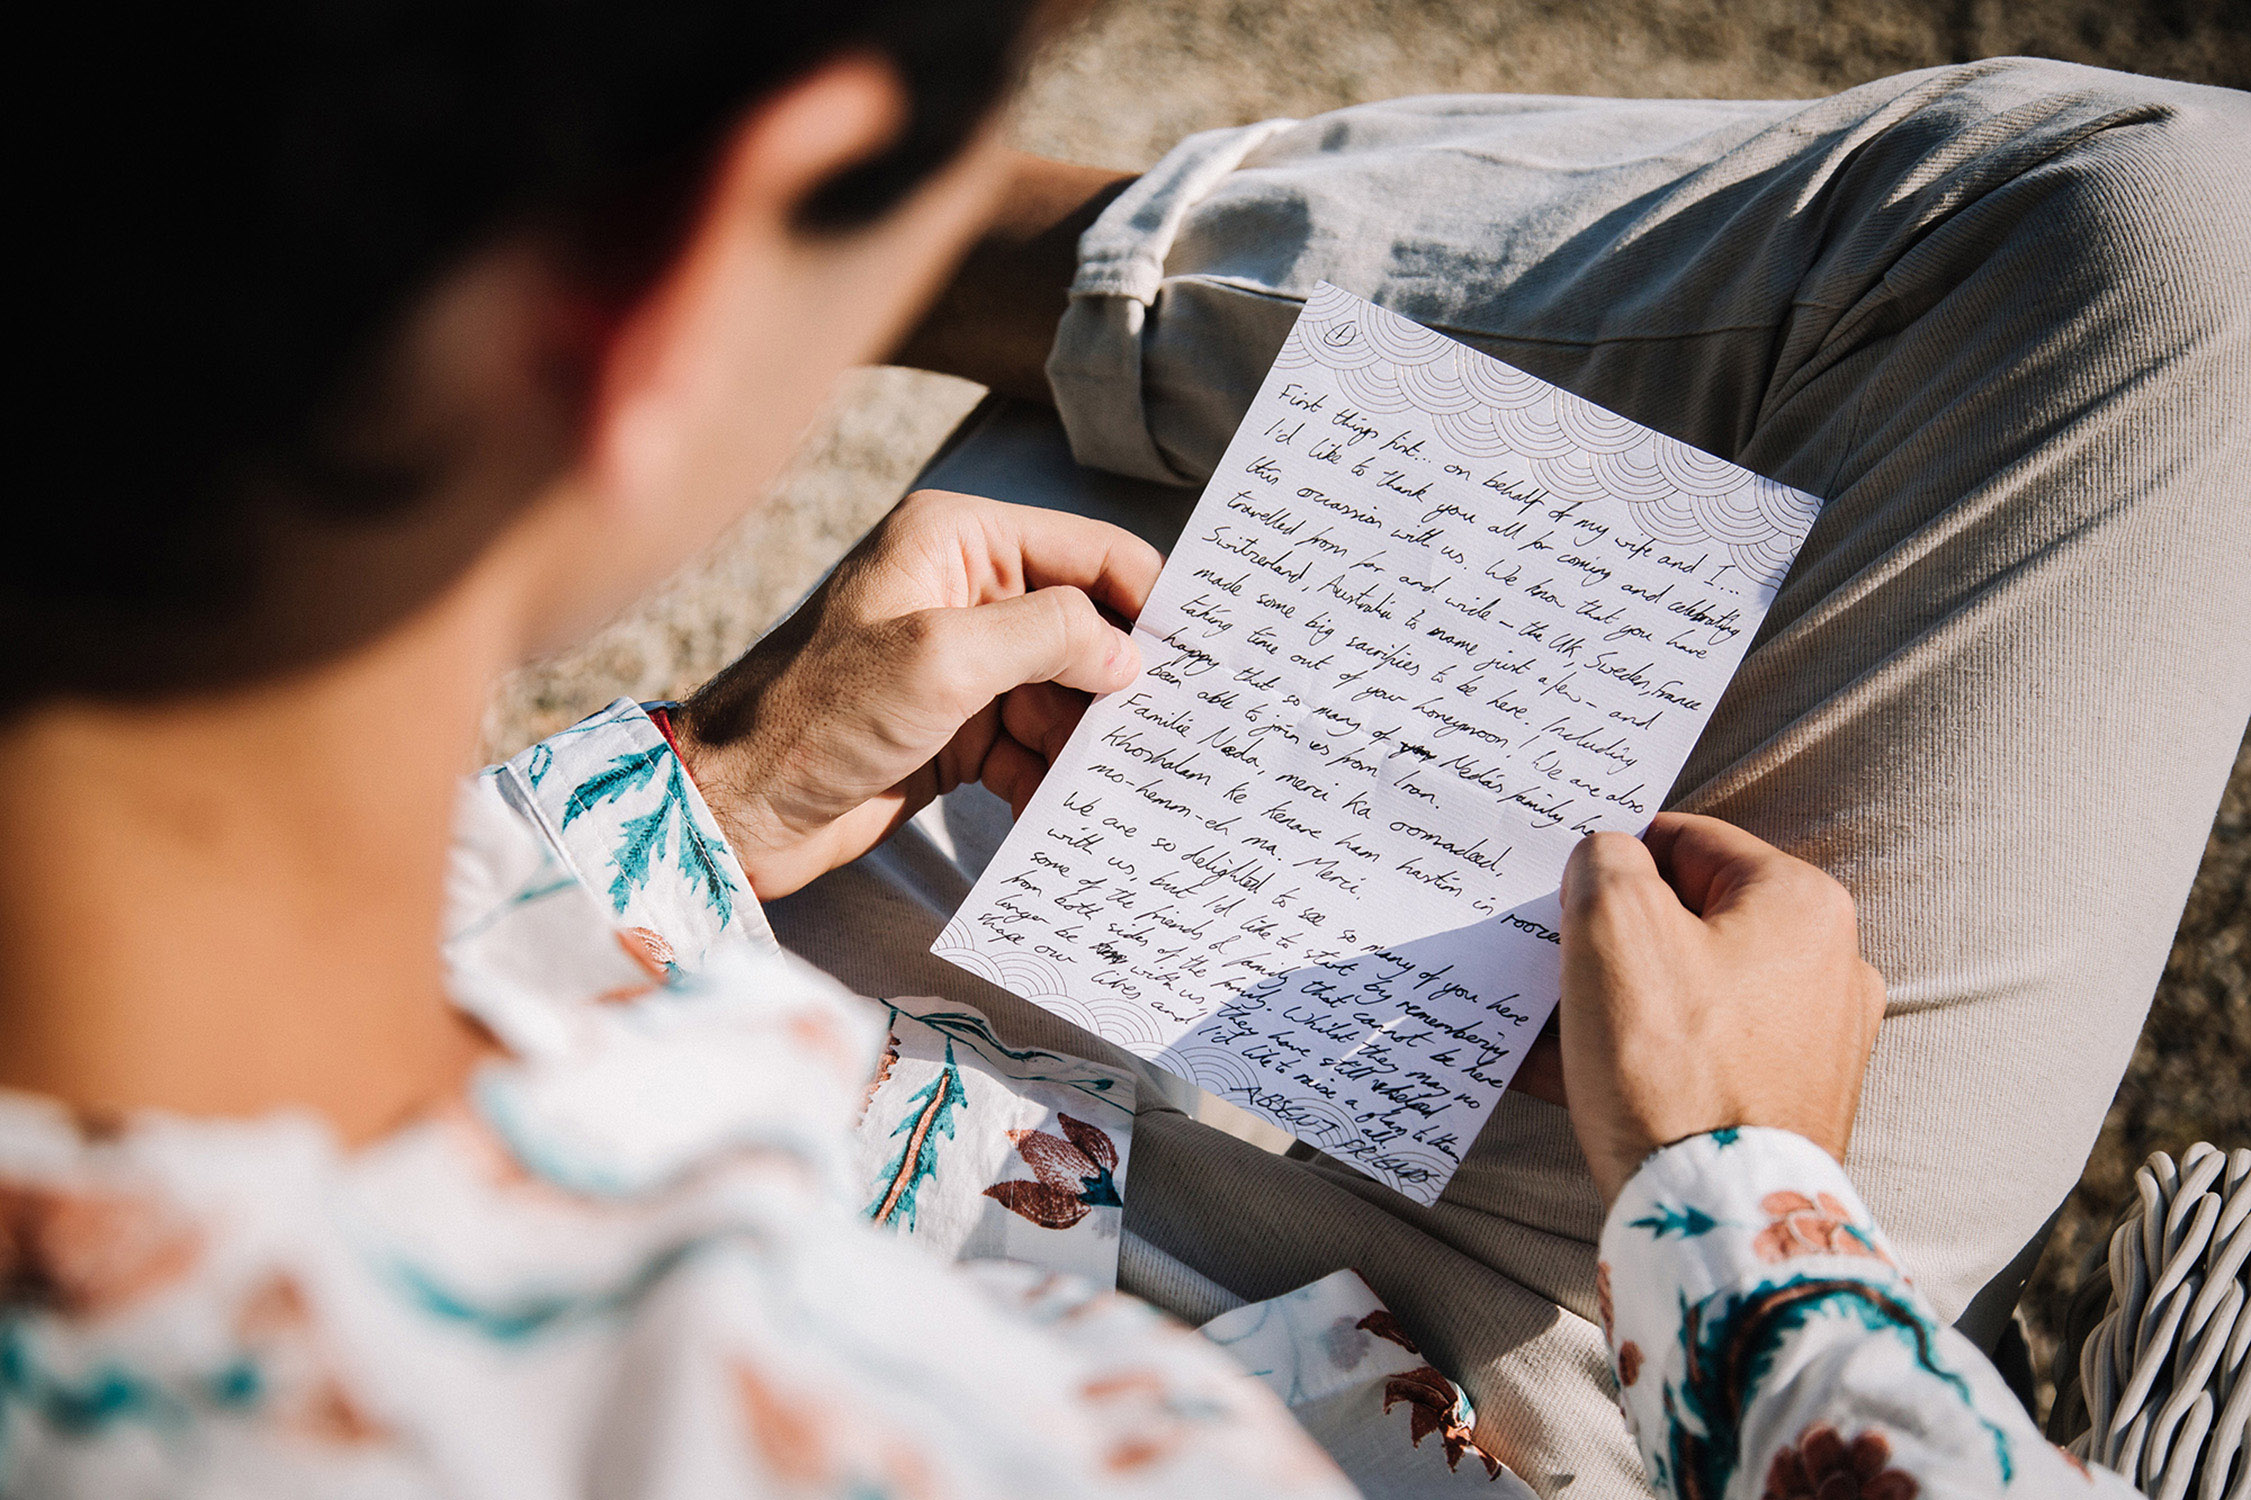 ①
First things first... on behalf of my wife and I...
I'd like to thank you all for coming and celebrating
this occassion with us. We know that you have
travelled from far and wide – the UK, Sweden, France
Switzerland, Australia to name just a few – and
made some big sacrifies to be here. Including
taking time out of your honeymoon! We are also
happy that so many of Neda's family ha
been able to join us from Iran.
Familie Neda, merci ka oomadeed,
Khoshalam ke kenare ham hastim in roozeh
mo-hemm-eh ma. Merci.
We are so delighted to see so many of you here
with us, but I'd like to start by remembering
some of the friends & family that cannot be here
from both sides of the family. Whilst they may no
longer be with us, they have still helped
shape our lives and I'd like to raise a glass to them
all.
ABSENT FRIENDS